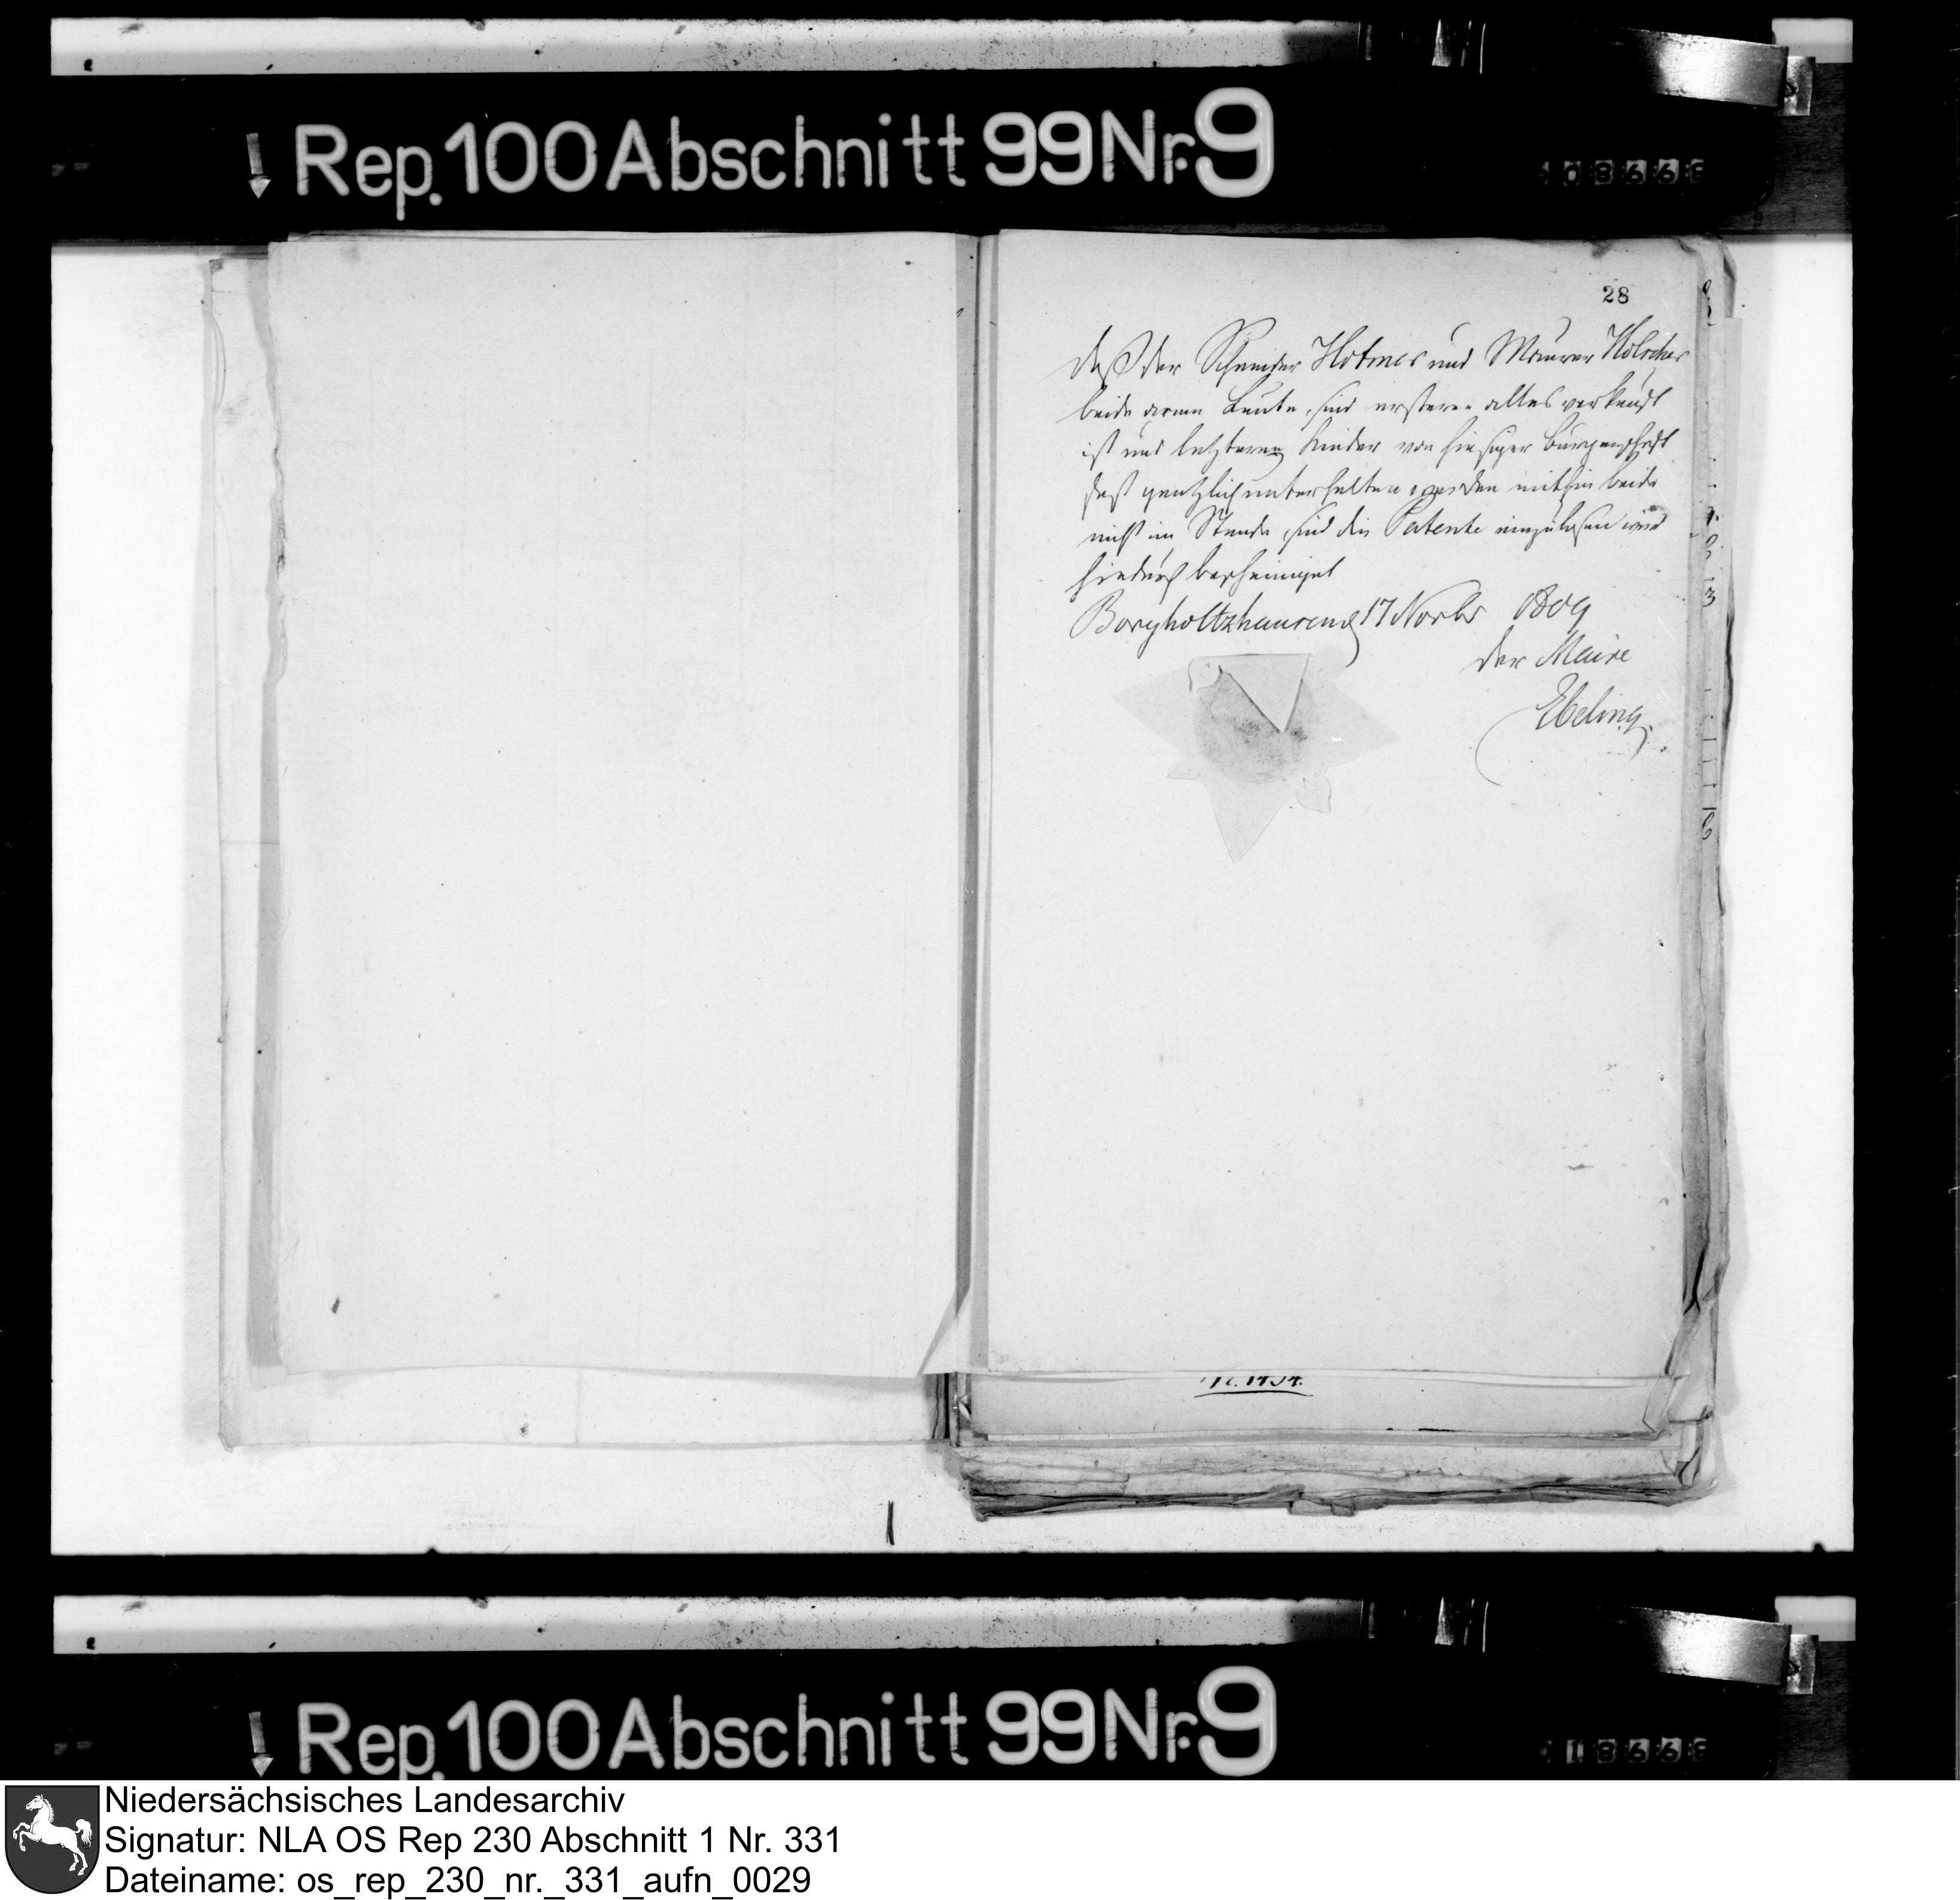 Rep. 100 Abschnitt 99 Nr. 9
28
daß der Schneider Hotmer und Maurer Hölscher
beide arme Leute sind ersterer alles verkauft
ist und letzteren Kinder von hiesiger Burgerschaft
fast gentzlich unterhalten werden mithin beide
nicht im Stande sind die Patente einzulosen wird
hiedurch bescheiniget
Borgholtzhausen d 17 Novbr 1809
der Maire
Ebeling.
Rep. 100 Abschnitt 99 Nr. 9
Niedersächsisches Landesarchiv
Signatur: NLA OS Rep 230 Abschnitt 1 Nr. 331
Dateiname: os_rep_230_nr._331_aufn_0029